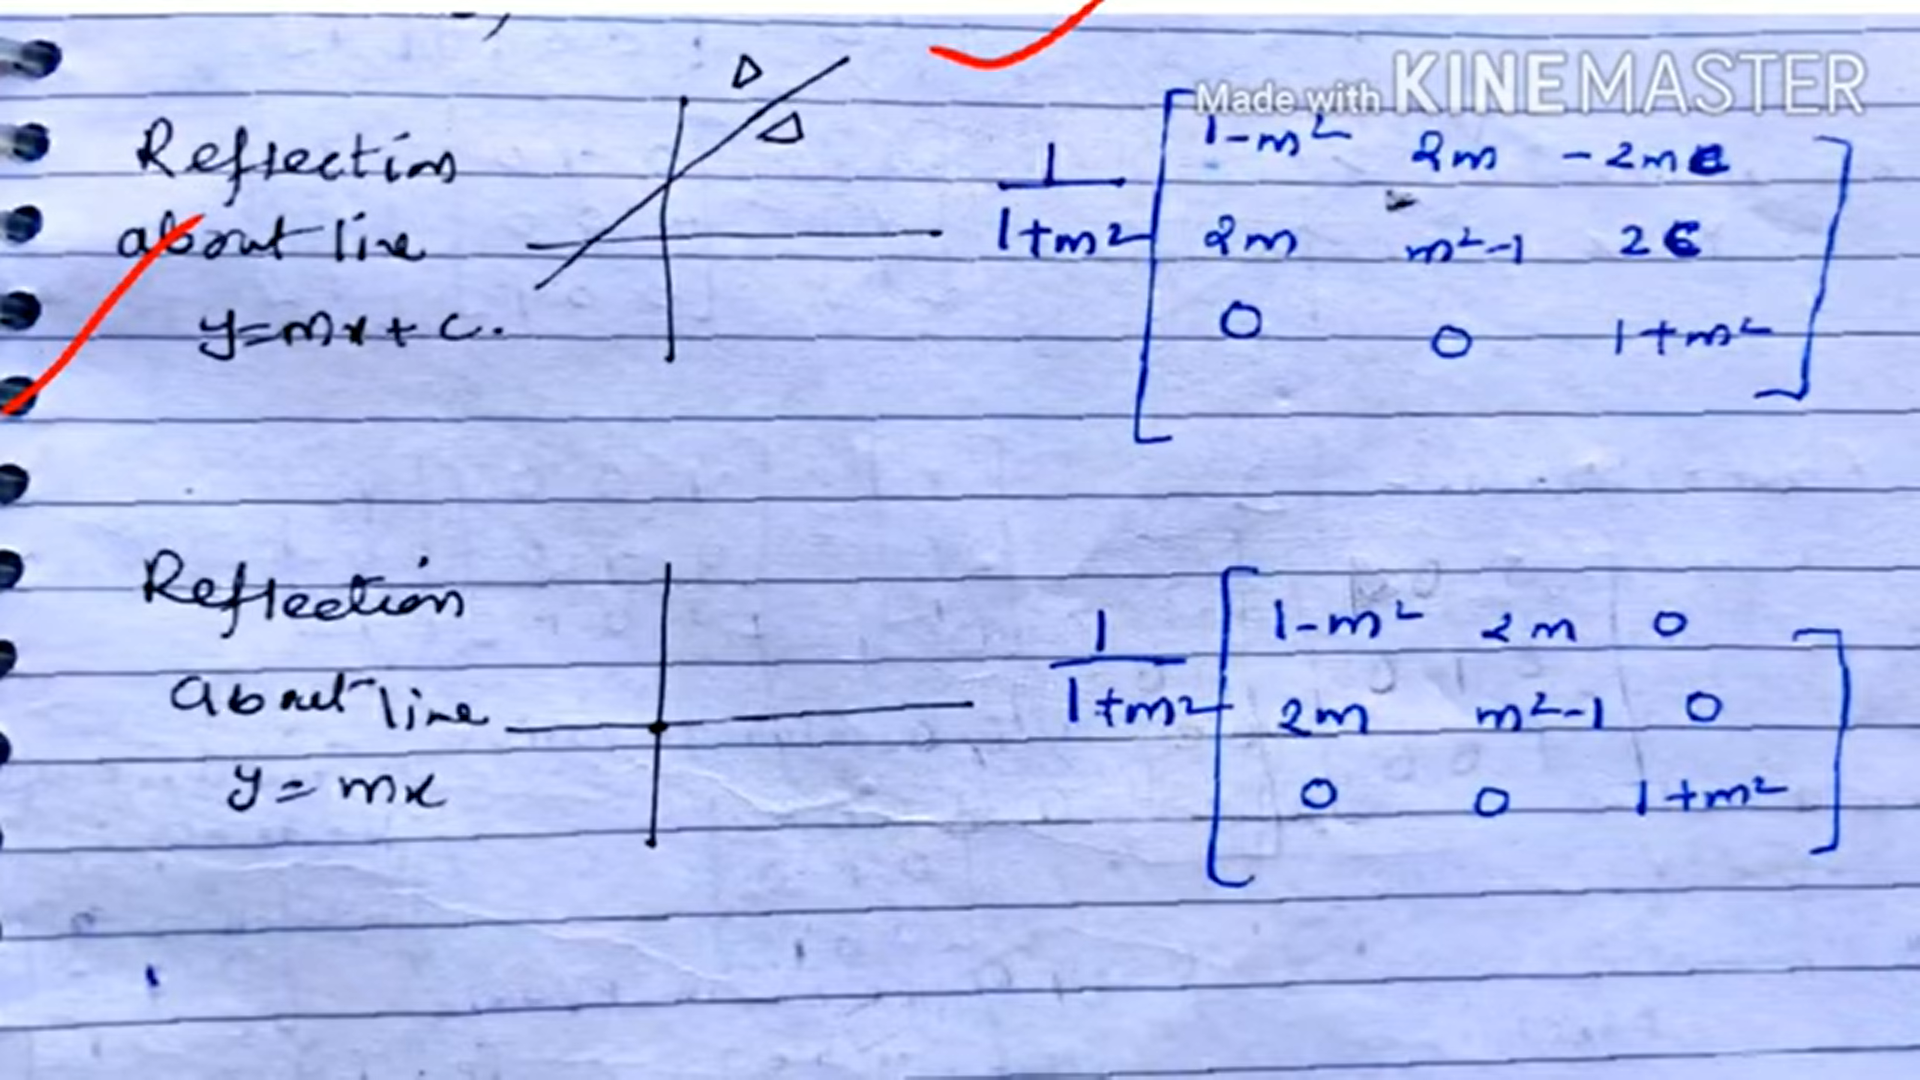 Made with KINEMASTER
Reflection
about line
y=mx+c.
1
1+m²
1-m² 2m -2mc
2m m²-1 2c
0 0 1+m²
Reflection
About line
y=mx
1
1+m²
1-m² 2m 0
2m m²-1 0
0 0 1+m²